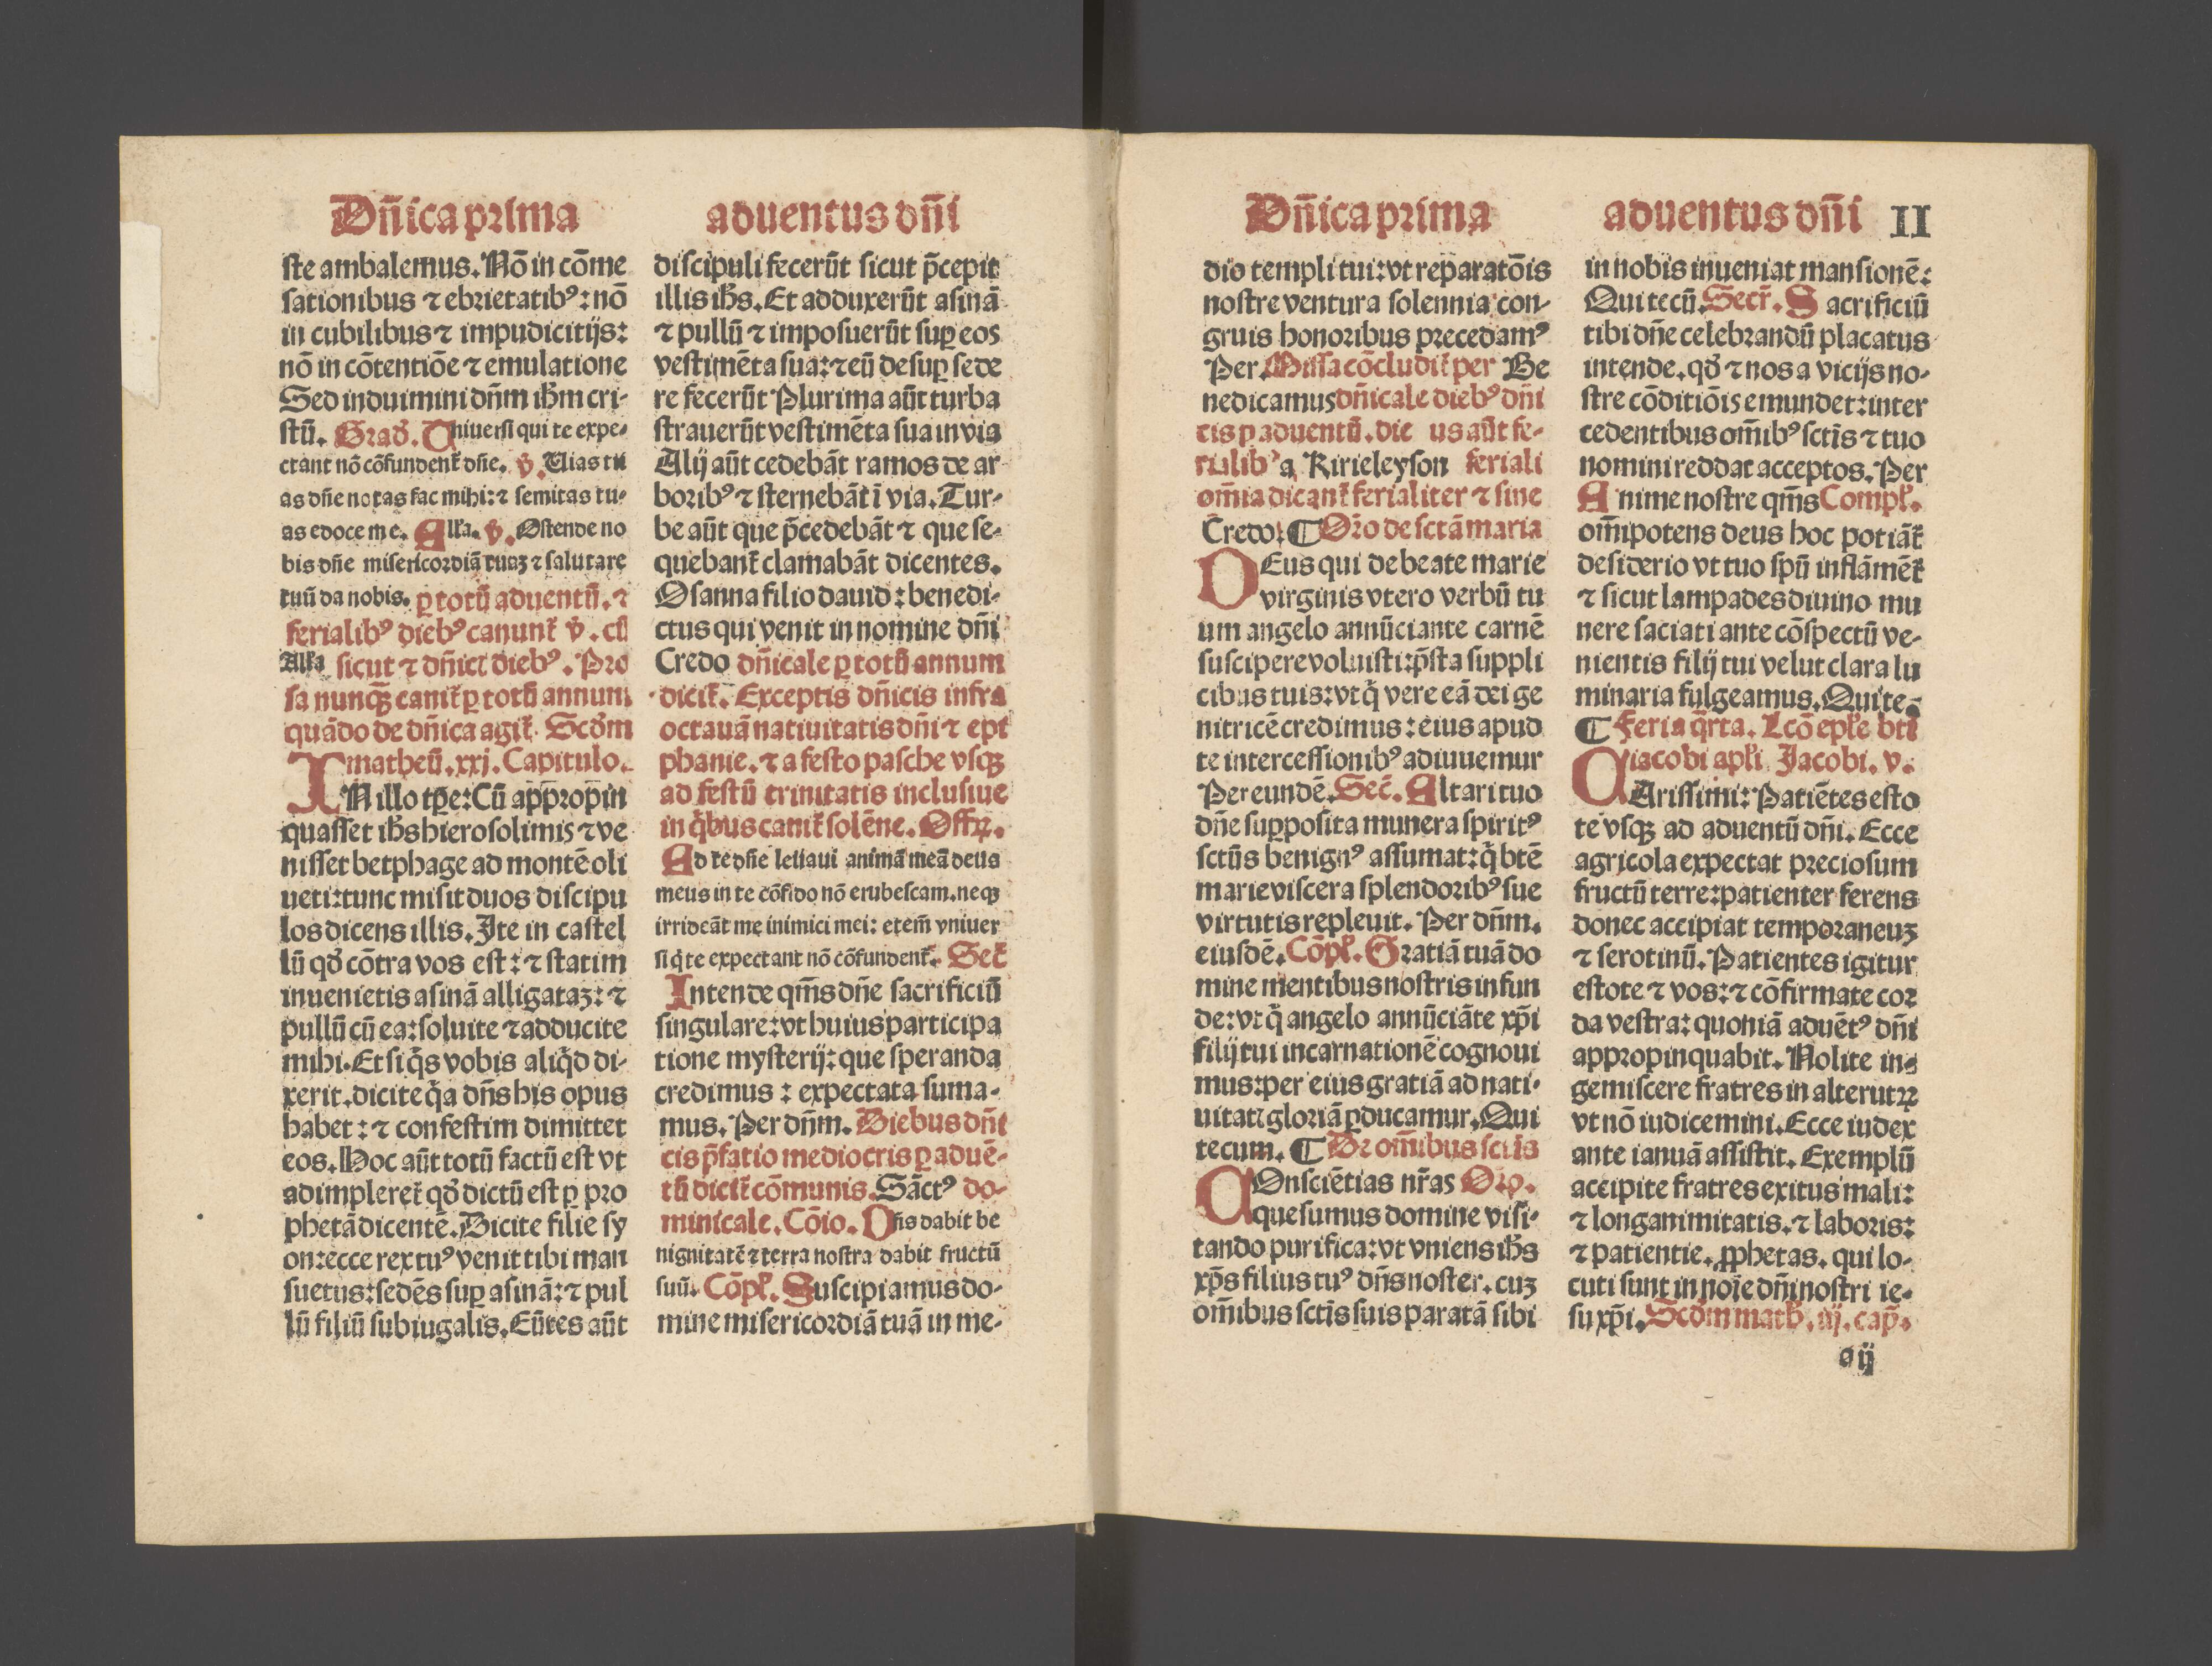 Dn̄ica prima
aduentus dn̄i
ste ambulemus. Nō in cōme
sationibus ⁊ ebrietatibꝰ: nō
in cubilibus ⁊ impudicitijs:
nō in cōtentiōe ⁊ emulatione
Sed induimini dn̄m ihm̄ cri-
stū. Grad̄. Uniuersi qui te expe-
ctant nō cōfundent̄ dn̄e. v̄. Uias tu
as dn̄e notas fac mihi: ⁊ semitas tu-
as edoce me. All'a. v̄. Ostende no
bis dn̄e misericordiā tuaꝫ ⁊ salutare
tuū da nobis. ꝑ totū aduentū. ⁊
ferialibꝰ diebꝰ canunt̄ v̄. cū
All'a sicut ⁊ dn̄ici diebꝰ. Pro
sa nunqꝫ canit̄ ꝑ totū annum
quādo de dn̄ica agit̄. Scd̄m
matheū. xxj. Capitulo.
IN illo tꝑe: Cū appropin
quasset ih̄s hierosolimis ⁊ ve
nisset betphage ad montē oli
ueti: tunc misit duos discipu
los dicens illis. Ite in castel
lū qd̄ cōtra vos est: ⁊ statim
inuenietis asinā alligataꝫ: ⁊
pullū cū ea: soluite ⁊ adducite
mihi. Et si q̄s vobis aliq̄d di-
xerit. dicite q̄a dn̄s his opus
habet: ⁊ confestim dimittet
eos. Hoc aūt totū factū est vt
adimpleret̄ qd̄ dictū est ꝑ pro
phetā dicentē. Dicite filie sy
on: ecce rex tuꝰ venit tibi man
suetus: sedēs suꝑ asinā: ⁊ pul
lū filiū subiugalis. Eūtes aūt
discipuli fecerūt sicut p̄cepit
illis ih̄s. Et adduxerūt asinā
⁊ pullū ⁊ imposuerūt suꝑ eos
vestimēta sua: ⁊ eū desuꝑ sede
re fecerūt Plurima aūt turba
strauerūt vestimēta sua in via
Alij aūt cedebāt ramos de ar
boribꝰ ⁊ sternebāt ī via. Tur-
be aūt que p̄cedebāt ⁊ que se-
quebant̄ clamabāt dicentes.
Osanna filio dauid: benedi-
ctus qui venit in nomine dn̄i
Credo dn̄icale ꝑ totū annum
dicit̄. Exceptis dn̄icis infra
octauā natiuitatis dn̄i ⁊ epi
phanie. ⁊ a festo pasche vsqꝫ
ad festū trinitatis inclusiue
in q̄bus canit̄ solēne. Offꝝ.
Ad te dn̄e leuaui animā meā deus
meus in te cōfido nō erubescam. neqꝫ
irrideāt me inimici mei: etem̄ vniuer
si q̄ te expectant nō cōfundent̄. Sec̄
Intende qm̄s dn̄e sacrificiū
singulare: vt huius participa
tione mysterij: que speranda
credimus: expectata suma-
mus. Per dn̄m. Diebus dn̄i
cis p̄fatio mediocris ꝑ aduē-
tū dicit̄ cōmunis. Sāctꝰ do-
minicale. Cōio. Dn̄s dabit be
nignitatē ⁊ terra nostra dabit fructū
suū. Cōpl̄. Suscipiamus do-
mine misericordiā tuā in me-
Dn̄ica prima
aduentus dn̄i II
dio templi tui: vt reparatōis
nostre ventura solennia con-
gruis honoribus precedamꝰ
Per. Missa cōcludit̄ per Be
nedicamus dn̄icale diebꝰ dn̄i
cis ꝑ aduentū. die us aūt fe-
rialibꝰ a Kirieleyson feriali
om̄ia dicant̄ ferialiter ⁊ sine
Credo: ¶ Or̄o de sctā maria
DEus qui de beate marie
virginis vtero verbū tu
um angelo annūciante carnē
suscipere voluisti: p̄sta suppli
cibus tuis: vt q̄ vere eā dei ge
nitricē credimus: eius apud
te intercessionibꝰ adiuuemur
Per eundē. Sec̄. Altari tuo
dn̄e suꝑposita munera spiritꝰ
sctūs benignꝰ assumat: q̄ btē
marie viscera splendoribꝰ sue
virtutis repleuit. Per dn̄m.
eiusdē. Cōpl̄. Gratiā tuā do
mine mentibus nostris infun
de: vt q̄ angelo annūciāte xp̄i
filij tui incarnationē cognoui
mus: per eius gratiā ad nati-
uitatꝭ gloriā ꝑducamur. Qui
tecum. ¶ De om̄ibus sctīs
COnsciētias nr̄as Or̄o.
quesumus domine visi-
tando purifica: vt vniens ih̄s
xp̄s filius tuꝰ dn̄s noster. cuꝫ
om̄ibus sctīs suis paratā sibi
in nobis inueniat mansionē:
Qui tecū. Secr̄. Sacrificiū
tibi dn̄e celebrandū placatus
intende. qd̄ ⁊ nos a vicijs no-
stre cōditiōis emundet: inter
cedentibus om̄ibꝰ sctīs ⁊ tuo
nomini reddat acceptos. Per
Anime nostre qm̄s Compl̄.
om̄ipotens deus hoc potiāt̄
desiderio vt tuo spū inflāmēt̄
⁊ sicut lampades diuino mu
nere saciati ante cōspectū ve-
nientis filij tui velut clara lu
minaria fulgeamus. Qui te.
¶ Feria q̄rta. Lcō epl̄e bti
iacobi apl̄i Jacobi. v.
CArissimi: Patiētes esto
te vsqꝫ ad aduentū dn̄i. Ecce
agricola expectat preciosum
fructū terre: patienter ferens
donec accipiat temporaneuꝫ
⁊ serotinū. Patientes igitur
estote ⁊ vos: ⁊ cōfirmate cor
da vestra: quoniā aduētꝰ dn̄i
appropinquabit. Nolite in-
gemiscere fratres in alterutꝝ
vt nō iudicemini. Ecce iudex
ante ianuā assistit. Exemplū
accipite fratres exitus mali:
⁊ longanimitatis. ⁊ laboris:
⁊ patientie. ꝓphetas. qui lo-
cuti sunt in noīe dn̄i nostri ie-
su xp̄i. Scd̄m math̄. iij. cap̄.
a ij